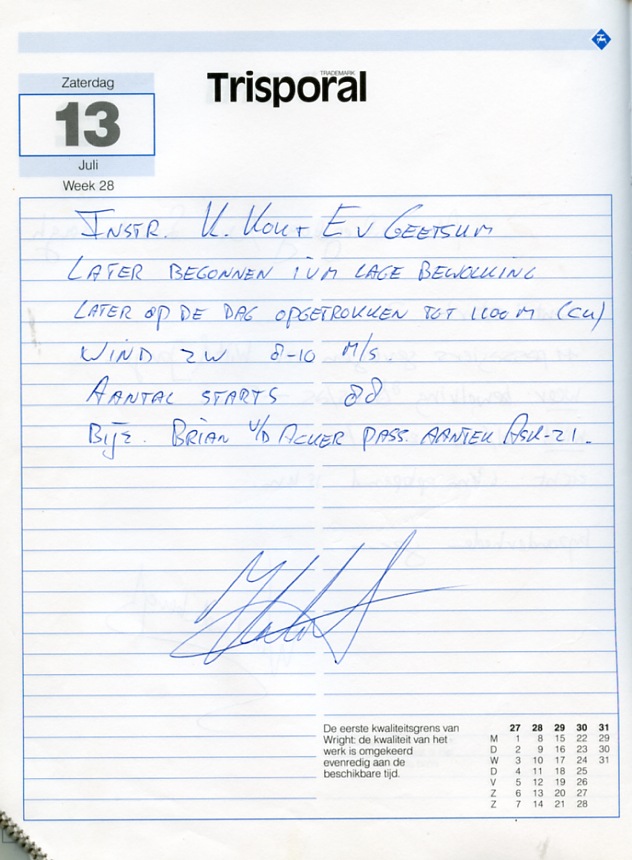 Zaterdag
TRADEMARK
Trisporal
13
Juli
Week 28
INSTR. K. KOUT E V GEETSUM
LATER BEGONNEN IVM LAGE BEWOLKING
LATER OP DE DAG OPGETROKKEN TOT 1100 M (CU)
WIND ZW 8-10 M/S.
AANTAL STARTS 88
BIJZ. BRIAN V/D ACKER PASS. AANTEK ASK-21.
De eerste kwaliteitsgrens van
Wright: de kwaliteit van het
werk is omgekeerd
evenredig aan de
beschikbare tijd.
27 28 29 30 31
M 1 8 15 22 29
D 2 9 16 23 30
W 3 10 17 24 31
D 4 11 18 25
V 5 12 19 26
Z 6 13 20 27
Z 7 14 21 28